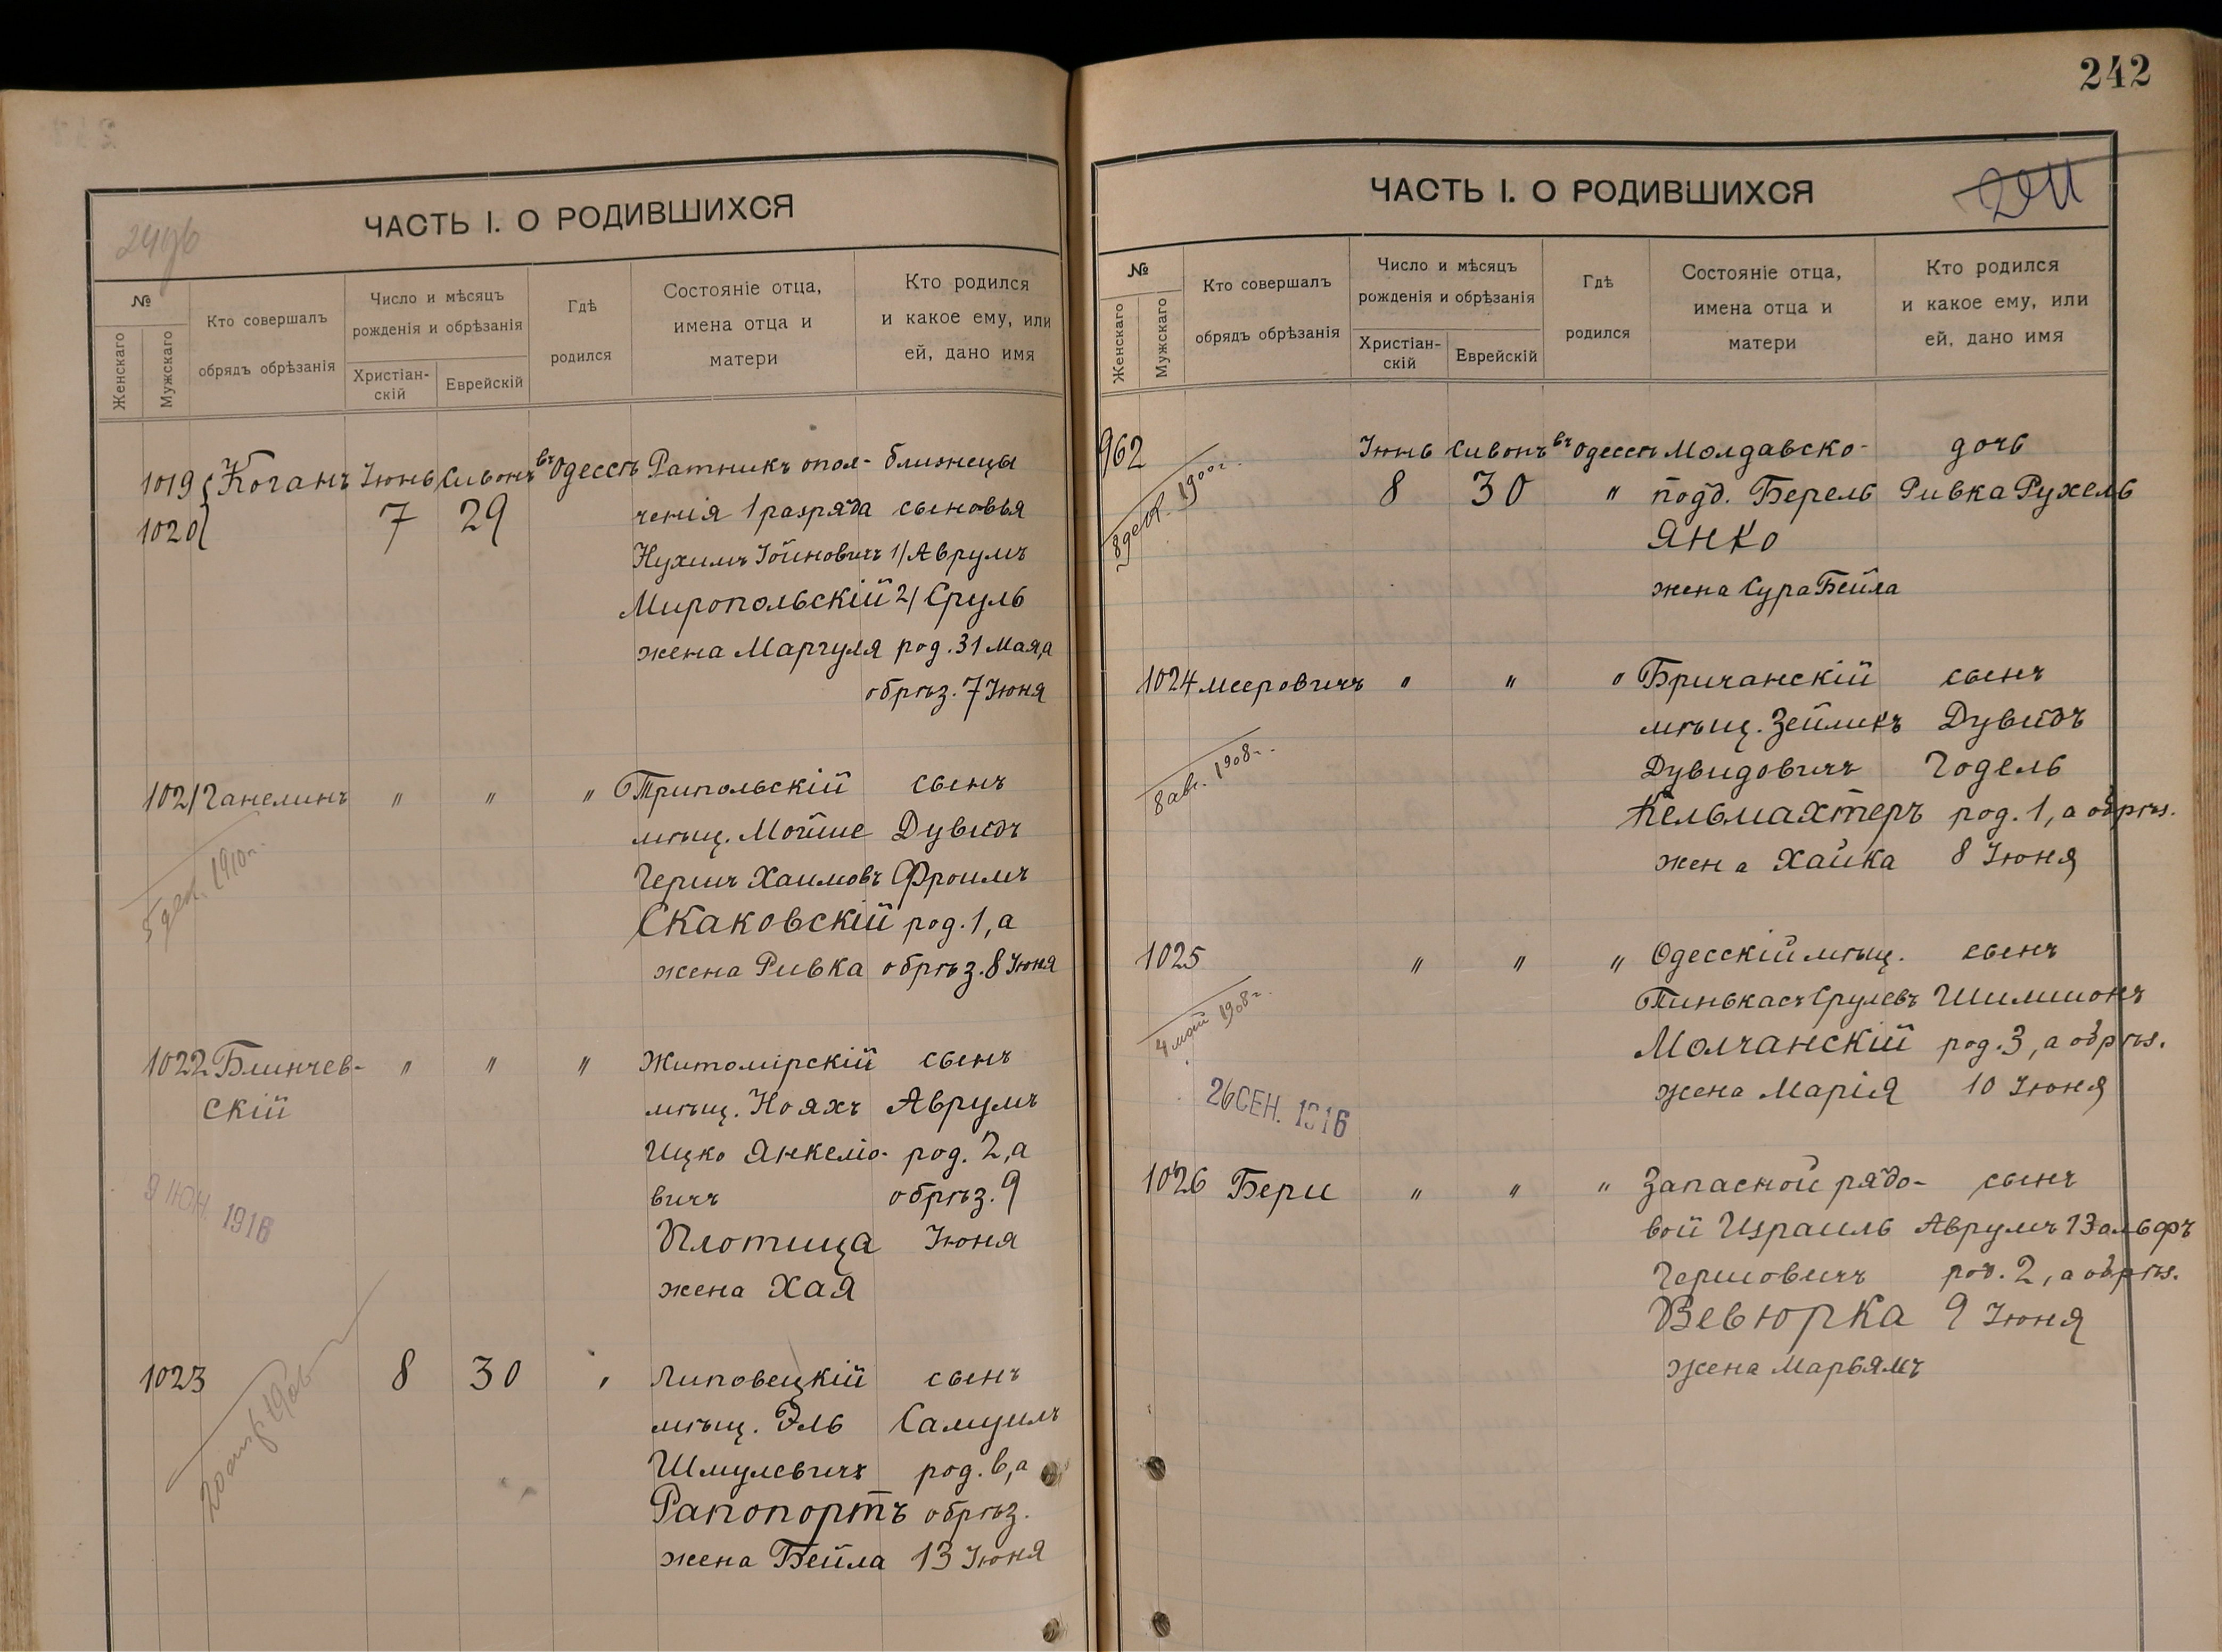 242
ЧАСТЬ I. О РОДИВШИХСЯ
№
Женскаго
Мужскаго
Кто совершалъ
обрядъ обрѣзанія
Число и мѣсяцъ
рожденія и обрѣзанія
Христіан-
скій
Еврейскій
Гдѣ
родился
Состояніе отца,
имена отца и
матери
Кто родился
и какое ему, или
ей, дано имя
1019 Коганъ Іюнь Сивонъ въ Одессѣ Ратникъ опол- близнецы
1020 7 29 ченія 1 разряда сыновья
Нухимъ Іойновичъ 1/ Аврумъ
Миропольскій 2/ Сруль
жена Маргуля род. 31 Мая, а
обрѣз. 7 Іюня
1021 Ганелинъ " " " Трипольскій сынъ
мѣщ. Мойше Дувидъ
Гершъ Хаимовъ Фроимъ
Скаковскій род. 1, а
жена Ривка обрѣз. 8 Іюня
5 дек. 1910г.
1022 Блинчев- " " " Житомірскій сынъ
скій мѣщ. Нояхъ Аврумъ
Ицко Янкеліо- род. 2, а
вичъ обрѣз. 9
Плотица Іюня
жена Хая
9 ІЮН. 1916
1023 8 30 " Липовецкій сынъ
мѣщ. Эль Самуилъ
Шмулевичъ род. 6, а
Рапопортъ обрѣз.
жена Бейла 13 Іюня
ЧАСТЬ I. О РОДИВШИХСЯ
№
Женскаго
Мужскаго
Кто совершалъ
обрядъ обрѣзанія
Число и мѣсяцъ
рожденія и обрѣзанія
Христіан-
скій
Еврейскій
Гдѣ
родился
Состояніе отца,
имена отца и
матери
Кто родился
и какое ему, или
ей, дано имя
962 Іюнь Сивонъ въ Одессѣ Молдавско- дочь
8 30 " подд. Берель Ривка Рухель
Янко
жена Сура Бейла
1024 Мееровичъ " " " Бричанскій сынъ
мѣщ. Зейликъ Дувидъ
Дувидовичъ Годель
Кельмахтеръ род. 1, а обрѣз.
жена Хайка 8 Іюня
8 авг. 1908г.
1025 " " " Одесскій мѣщ. сынъ
Пинькасъ Срулевъ Шилиионъ
Молчанскій род. 3, а обрѣз.
жена Марія 10 Іюня
4 май 1908г.
26 СЕН. 1916
1026 Бери " " " Запасной рядо- сынъ
вой Израиль Аврумъ Вольфъ
Гершовичъ род. 2, а обрѣз.
Вевюрка 9 Іюня
жена Марьямъ